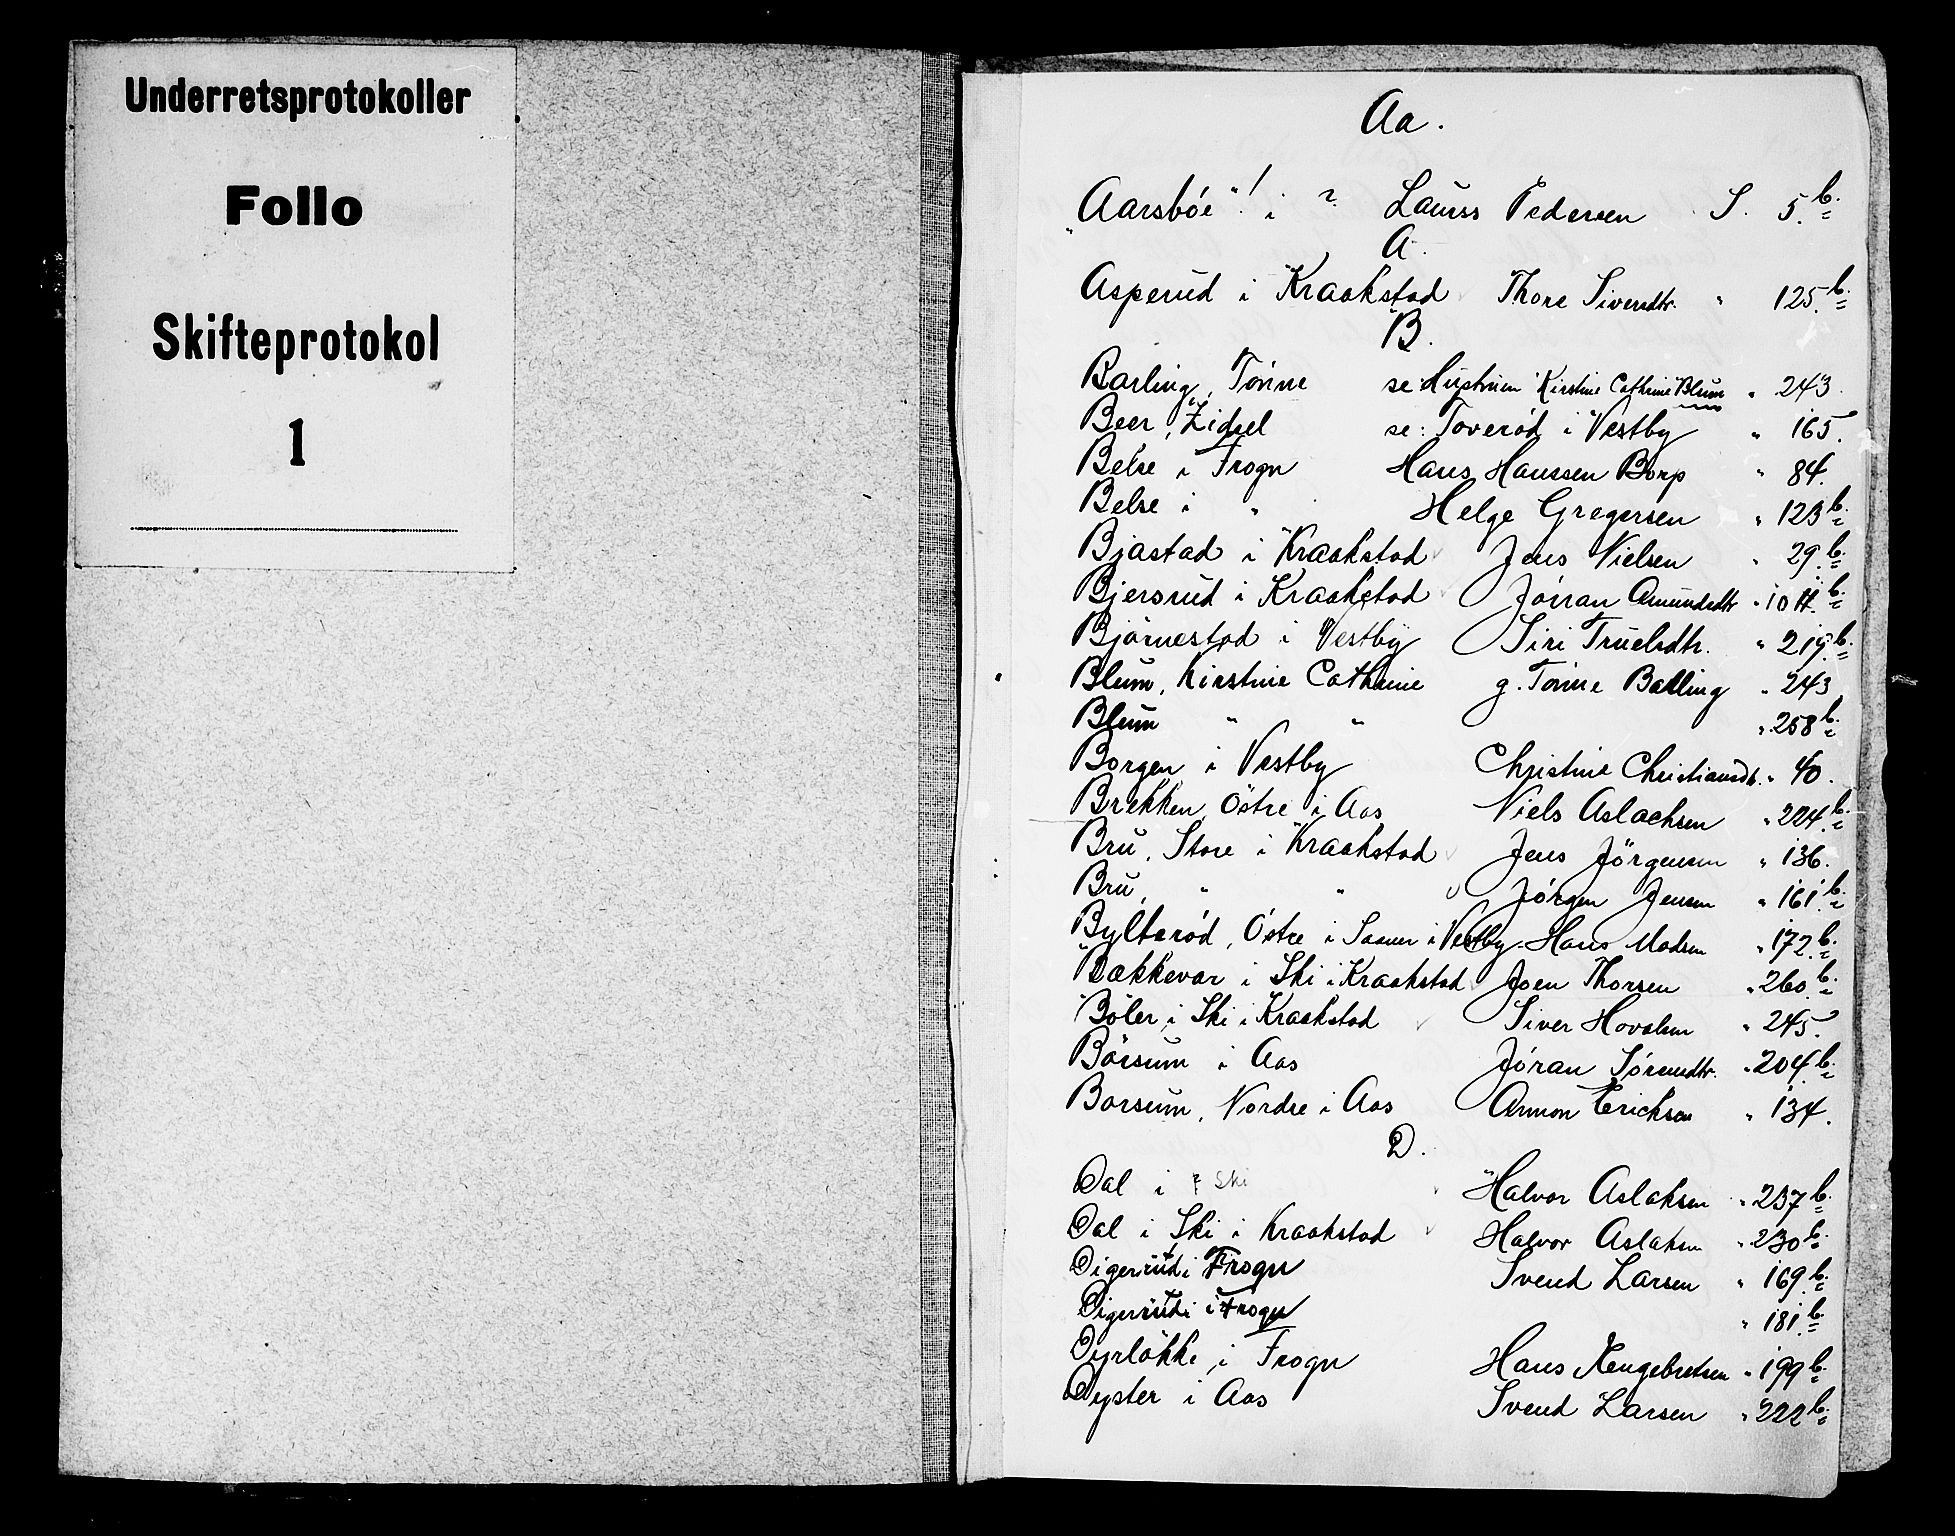 Underretsprotokoller
Follo
Skifteprotokol
1
Aa.
"Aarsböe"! i ? Laurss Pedersen S. 5.b.
A.
Asperud i Kraakstad Thore Siversdtr. " 125.b.
B.
Barling, Tönne se Hustruen Kirstine Cathrine Blum " 243.
Beer, Zidsel se: Toveröd i Vestby " 165.
Belse i Frogn Hans Hanssen Borp " 84.
Belse i " Helge Gregersen " 123b.
Bjastad i Kraakstad Jens Nielsen " 29.b.
Bjersrud i Kraakstad Jöran Amundsdtr " 104.b.
Bjørnestad i Vestby Siri Truelsdtr. " 219.b.
Blum, Kirstine Cathrine g. Tönne Balling " 243
Blum " " " 258b.
Borgen i Vestby Christine Christiansdt. " 40.
Brekken, Östre i Aas Niels Aslachsen " 224.b.
Bru, Store i Kraakstad Jens Jörgensen " 136.
Bru, " " Jörgen Jensen " 161.b.
Byltsröd, Östre i Saaner i Vestby. Hans Madsen " 172.b.
Bækkevar i Ski i Kraakstad Joen Thorsen " 260.b.
Böler i Ski i Kraakstad Siver Hovalsen " 245.
Börsum i Aas Jöran Sörensdtr. " 204.b.
Borsum, Nordre i Aas Ammon Ericksen " 134.
D.
Dal i ? Ski Halvor Aslaksen " 237b.
Dal i Ski i Kraakstad Halvor Aslaksen " 230b.
Digerud i Frogn Svend Larsen " 169.b.
Digerud i Frogn " 181.b.
Dyrlökke i Frogn Hans Engebretsen " 199b.
Dyster i Aas Svend Larsen " 222b.